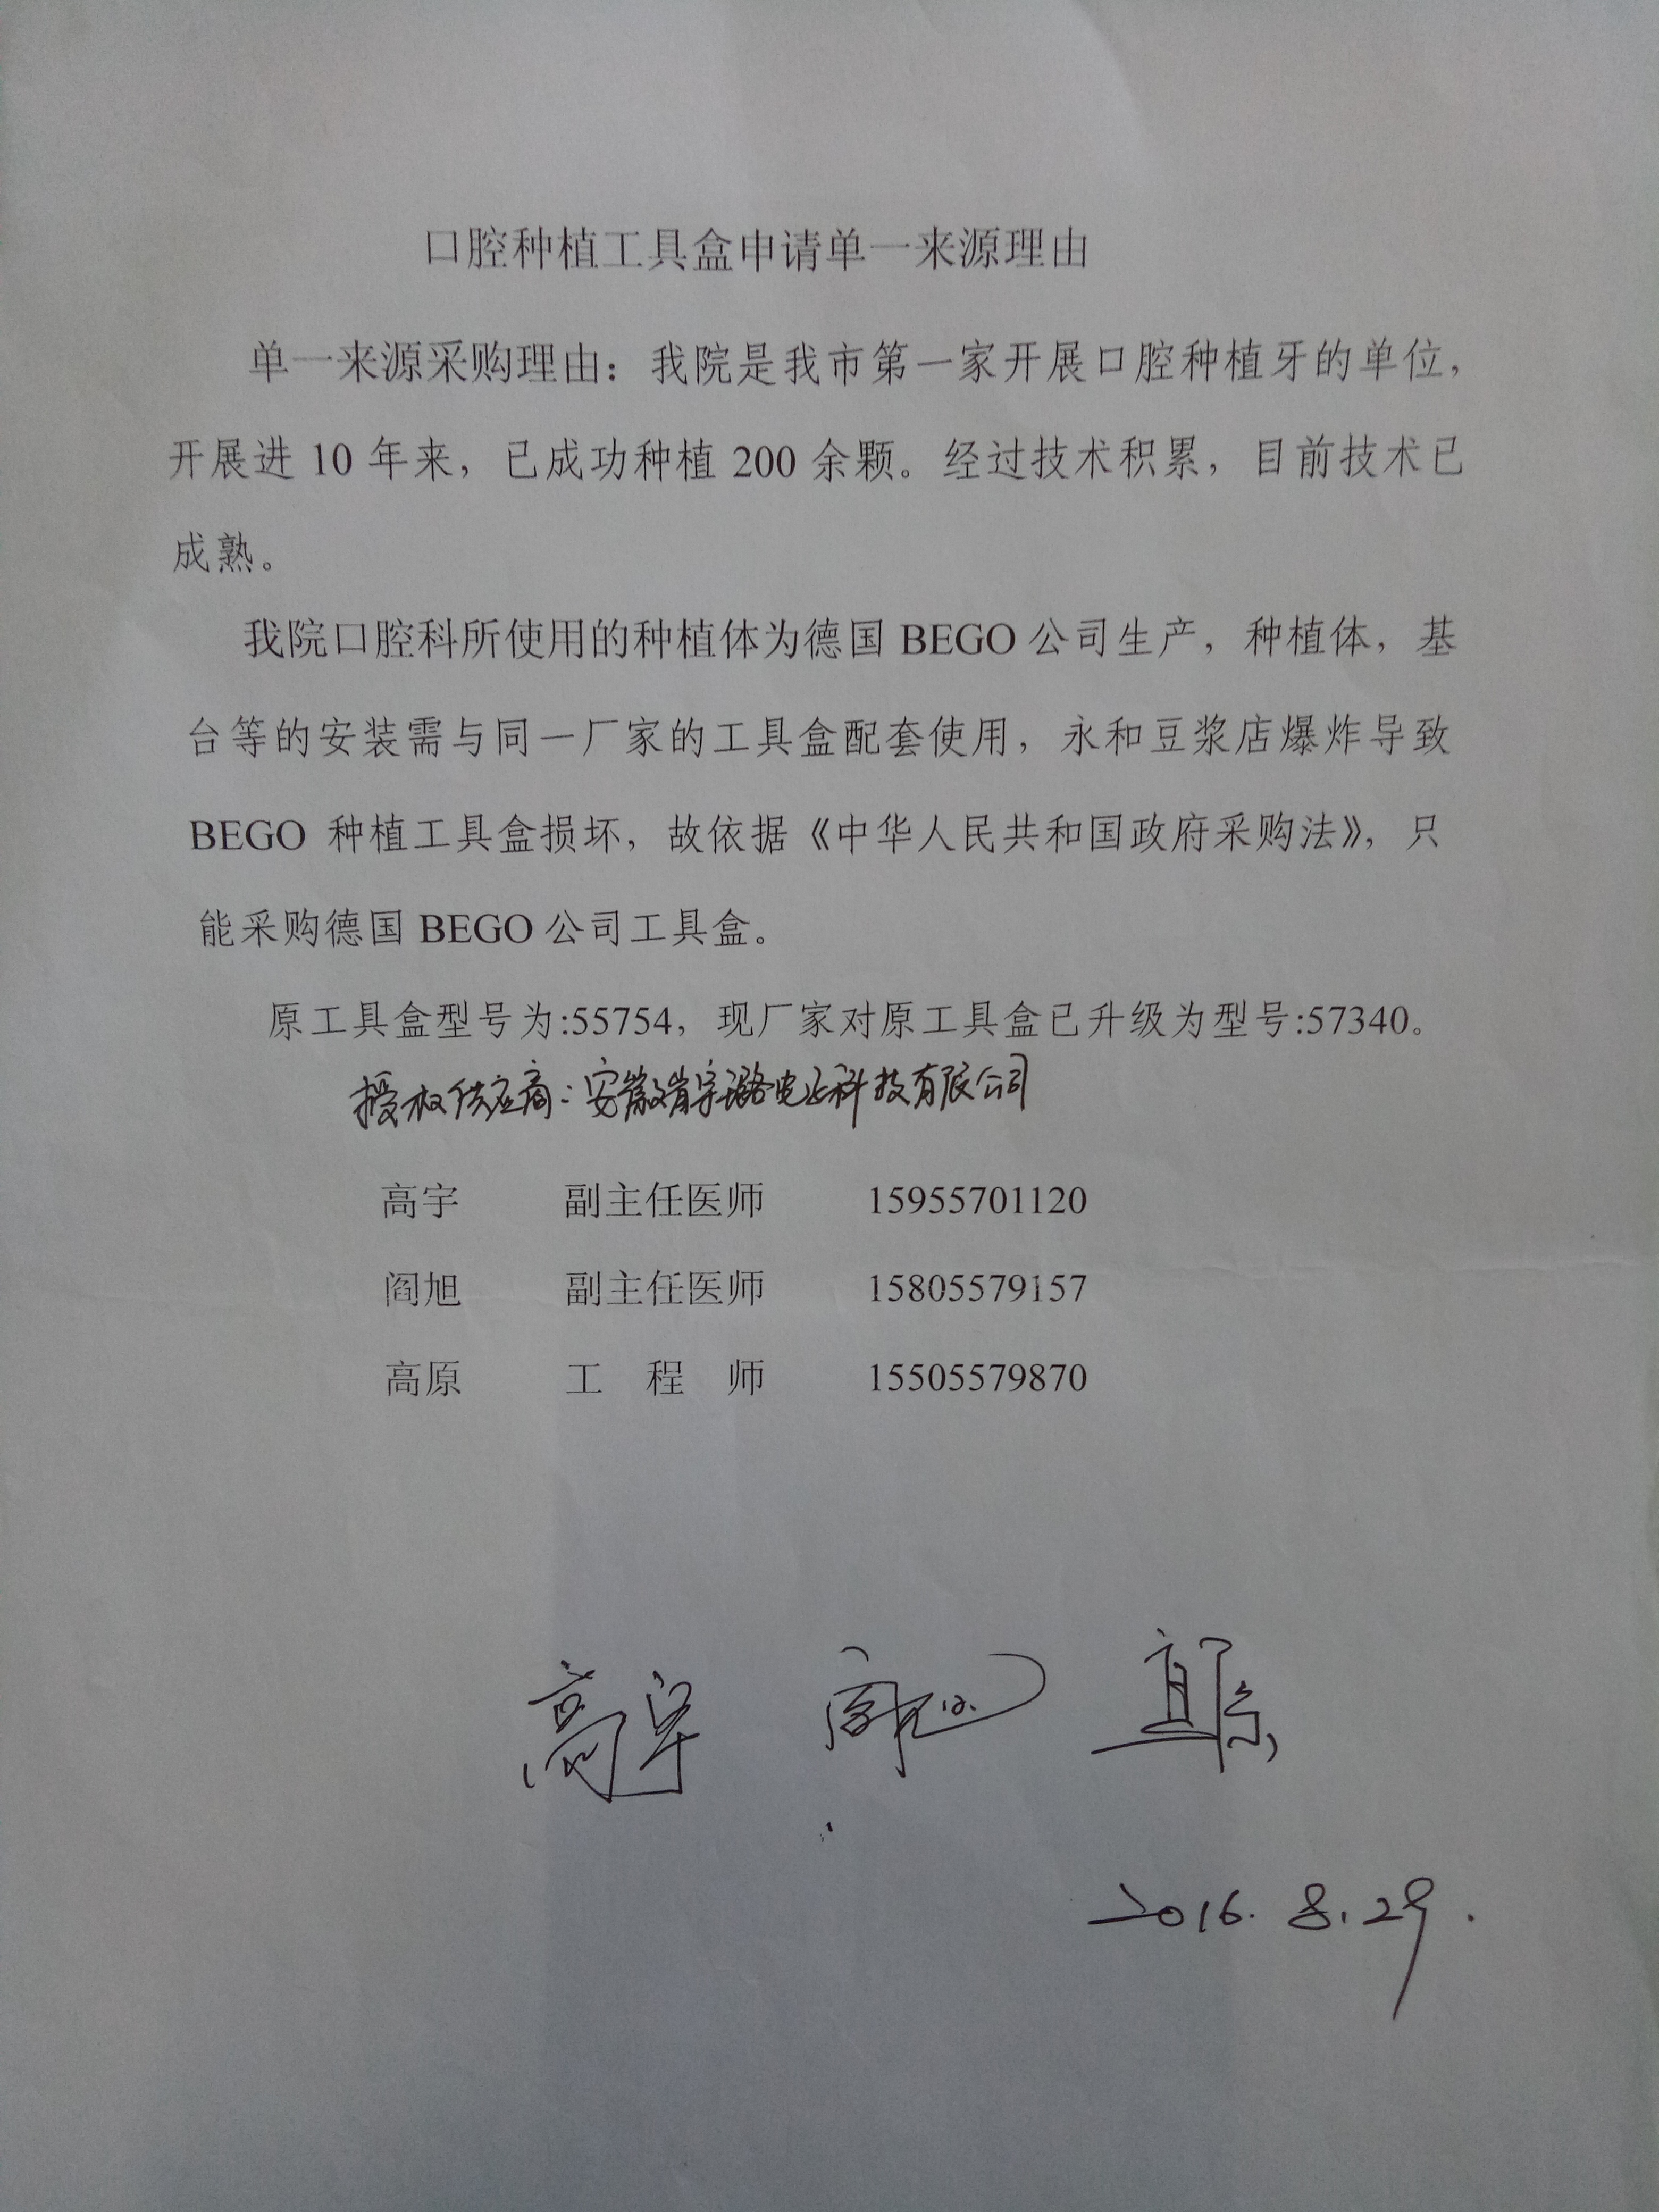 口腔种植工具盒申请单一来源理由
单一来源采购理由：我院是我市第一家开展口腔种植牙的单位，
开展进 10 年来，已成功种植 200 余颗。经过技术积累，目前技术已
成熟。
我院口腔科所使用的种植体为德国 BEGO 公司生产，种植体，基
台等的安装需与同一厂家的工具盒配套使用，永和豆浆店爆炸导致
BEGO 种植工具盒损坏，故依据《中华人民共和国政府采购法》，只
能采购德国 BEGO 公司工具盒。
原工具盒型号为:55754，现厂家对原工具盒已升级为型号:57340。
授权供应商：安徽 宇璐电子科技有限公司
高宇 副主任医师 15955701120
阎旭 副主任医师 15805579157
高原 工 程 师 15505579870
高宇 高原
2016.8.29.